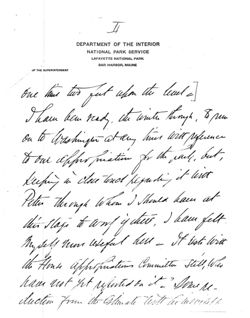 II
DEPARTMENT OF THE INTERIOR
NATIONAL PARK SERVICE
LAFAYETTE NATIONAL PARK
BAR HARBOR, MAINE
OF THE SUPERINTENDENT
one thus two feet upon the level—]
I have been ready, the winter through, to run
on to Washington at any time with reference
to our appropriation for the early, but,
keeping in close touch regarding it with
Peters through whom I should have at
this stage to work if there, I have felt
myself more useful here — It rests with
the House Appropriations Committee still, who
have not yet reported on it — Some re-
duction from the Estimate